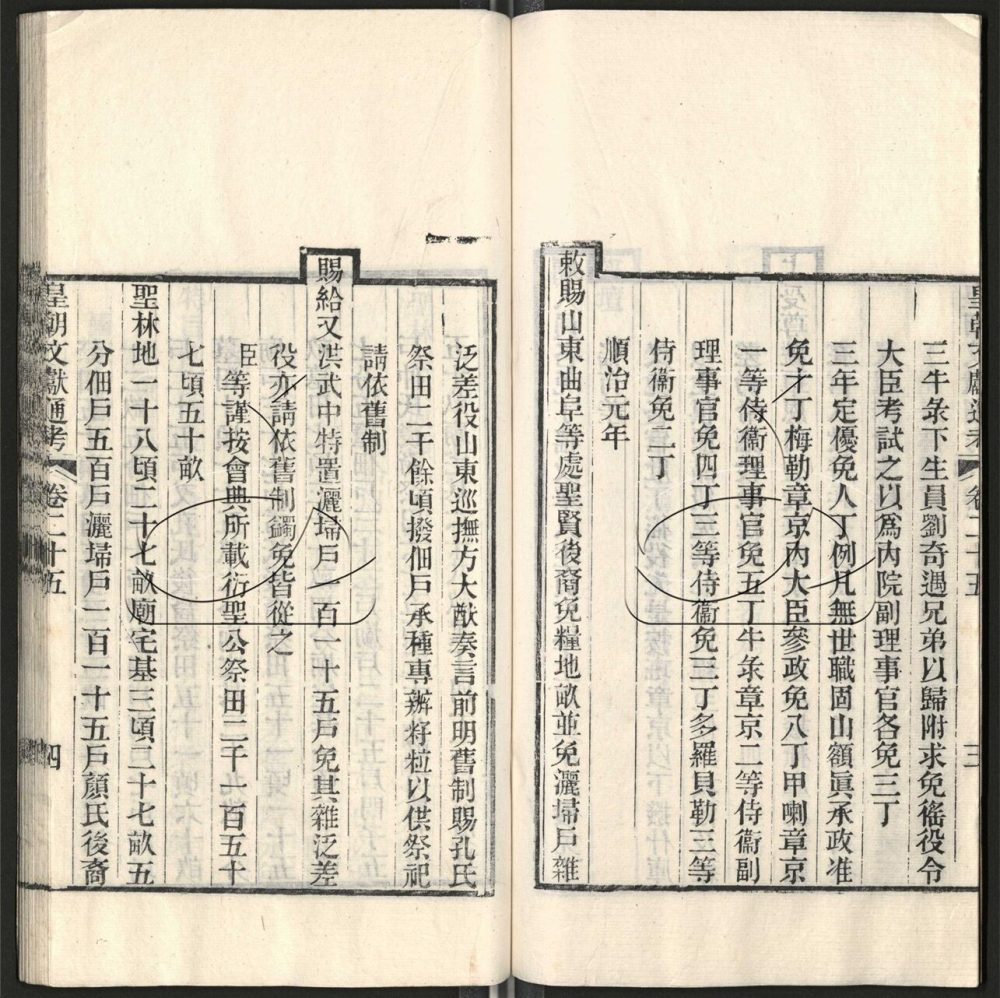 皇朝文獻通考 卷二十五 三
三牛彔下生員劉奇遇兄弟以歸附求免徭役令
大臣考試之以爲內院副理事官各免三丁
三年定優免人丁例凡無世職固山額眞承政准
免十丁梅勒章京內大臣參政免八丁甲喇章京
一等侍衞理事官免五丁牛彔章京二等侍衞副
理事官免四丁三等侍衞免三丁多羅貝勒三等
侍衞免二丁
順治元年
敕賜山東曲阜等處聖賢後裔免糧地畝並免灑埽戶雜
泛差役山東巡撫方大猷奏言前明舊制賜孔氏
祭田二千餘頃撥佃戶承種專辦籽粒以供祭祀
請依舊制
賜給又洪武中特置灑埽戶一百一十五戶免其雜泛差
役亦請依舊制蠲免皆從之
臣等謹按會典所載衍聖公祭田二千一百五十
七頃五十畝
聖林地一十八頃二十七畝廟宅基三頃二十七畝五
分佃戶五百戶灑埽戶一百一十五戶顏氏後裔
皇朝文獻通考 卷二十五 四